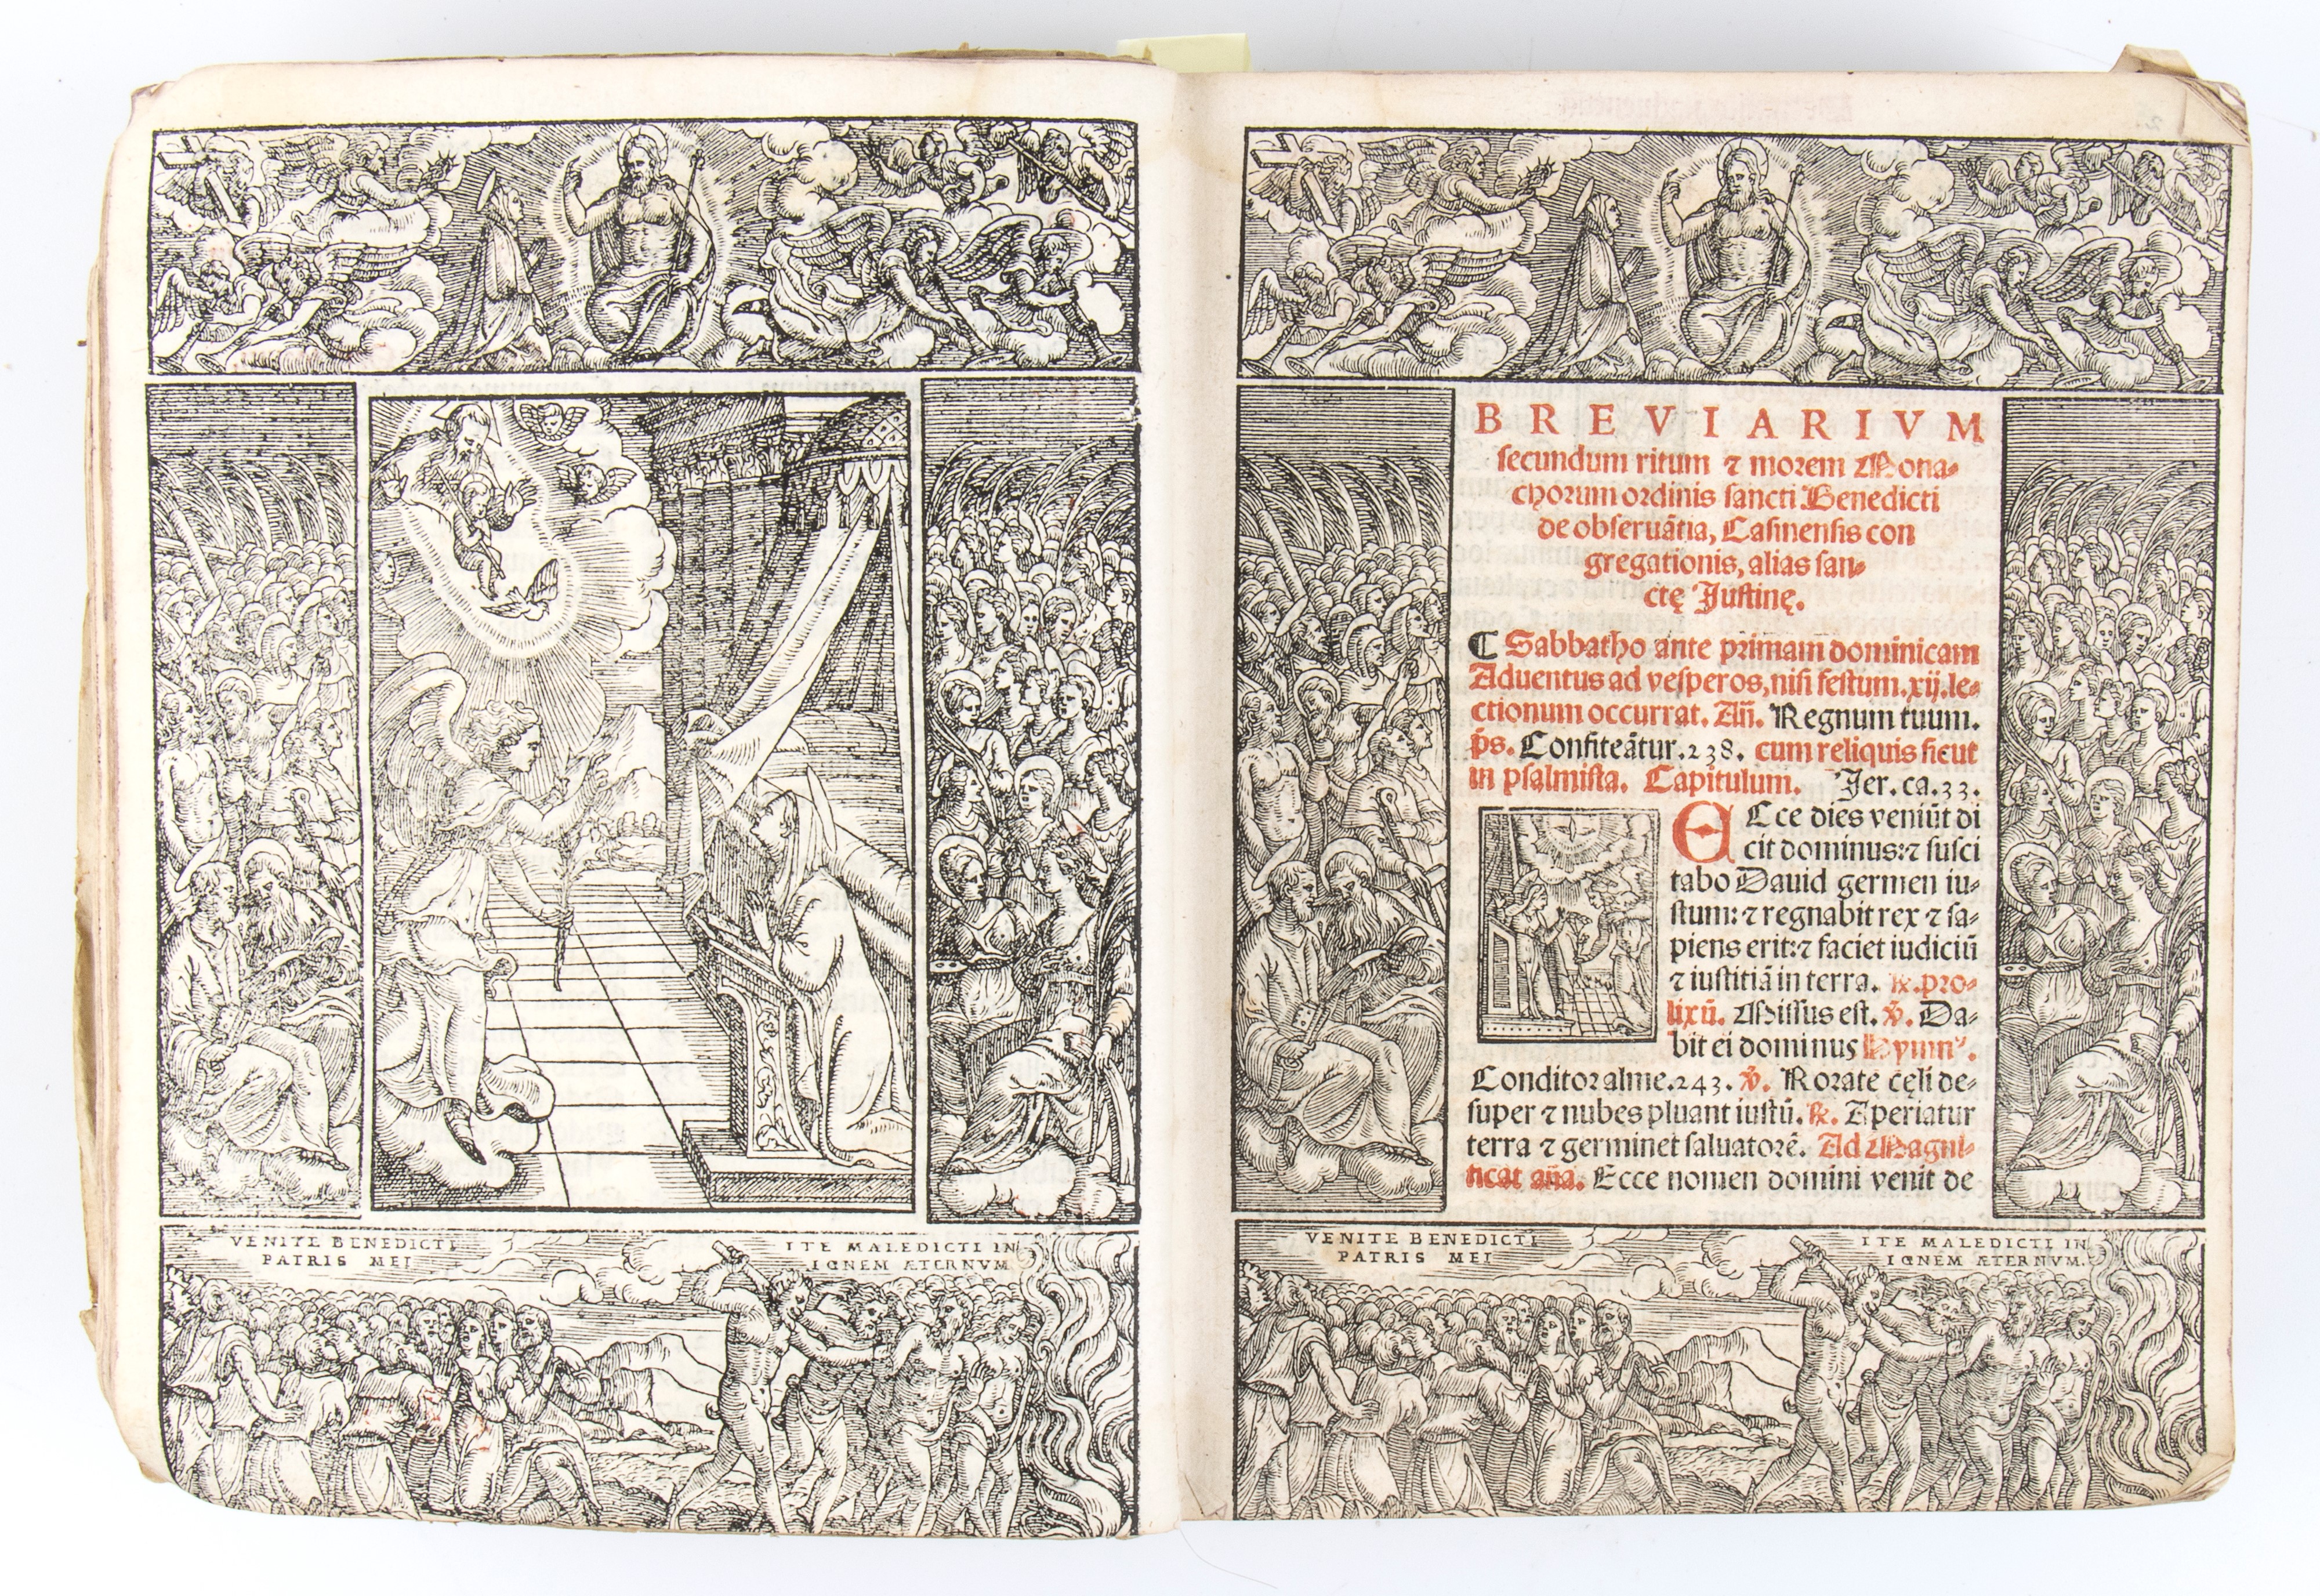 VENITE BENEDICTI
PATRIS MEI
ITE MALEDICTI IN
IGNEM ÆTERNVM
BREVIARIVM
secundum ritum ⁊ morem Mona⸗
chorum ordinis sancti Benedicti
de obseruãtia, Casinensis con
gregationis, alias san⸗
ctę Iustinę.
C Sabbatho ante primam dominicam
Aduentus ad vesperos, nisi festum .xij. le⸗
ctionum occurrat. Añ. Regnum tuum.
p̄s. Confiteãtur. 238. cum reliquis sicut
in psalmista. Capitulum. Jer. ca. 33.
ECce dies veniũt di
cit dominus: ⁊ susci
tabo Dauid germen iu⸗
stum: ⁊ regnabit rex ⁊ sa⸗
piens erit: ⁊ faciet iudiciũ
⁊ iustitiã in terra. ℞. pro⸗
lixũ. Missus est. ℣. Da⸗
bit ei dominus Hymnꝰ.
Conditor alme. 243. ℣. Rorate cęli de⸗
super ⁊ nubes pluant iustũ. ℞. Aperiatur
terra ⁊ germinet saluatorẽ. Ad Magni⸗
ficat aña. Ecce nomen domini venit de
VENITE BENEDICTI
PATRIS MEI
ITE MALEDICTI IN
IGNEM ÆTERNVM.